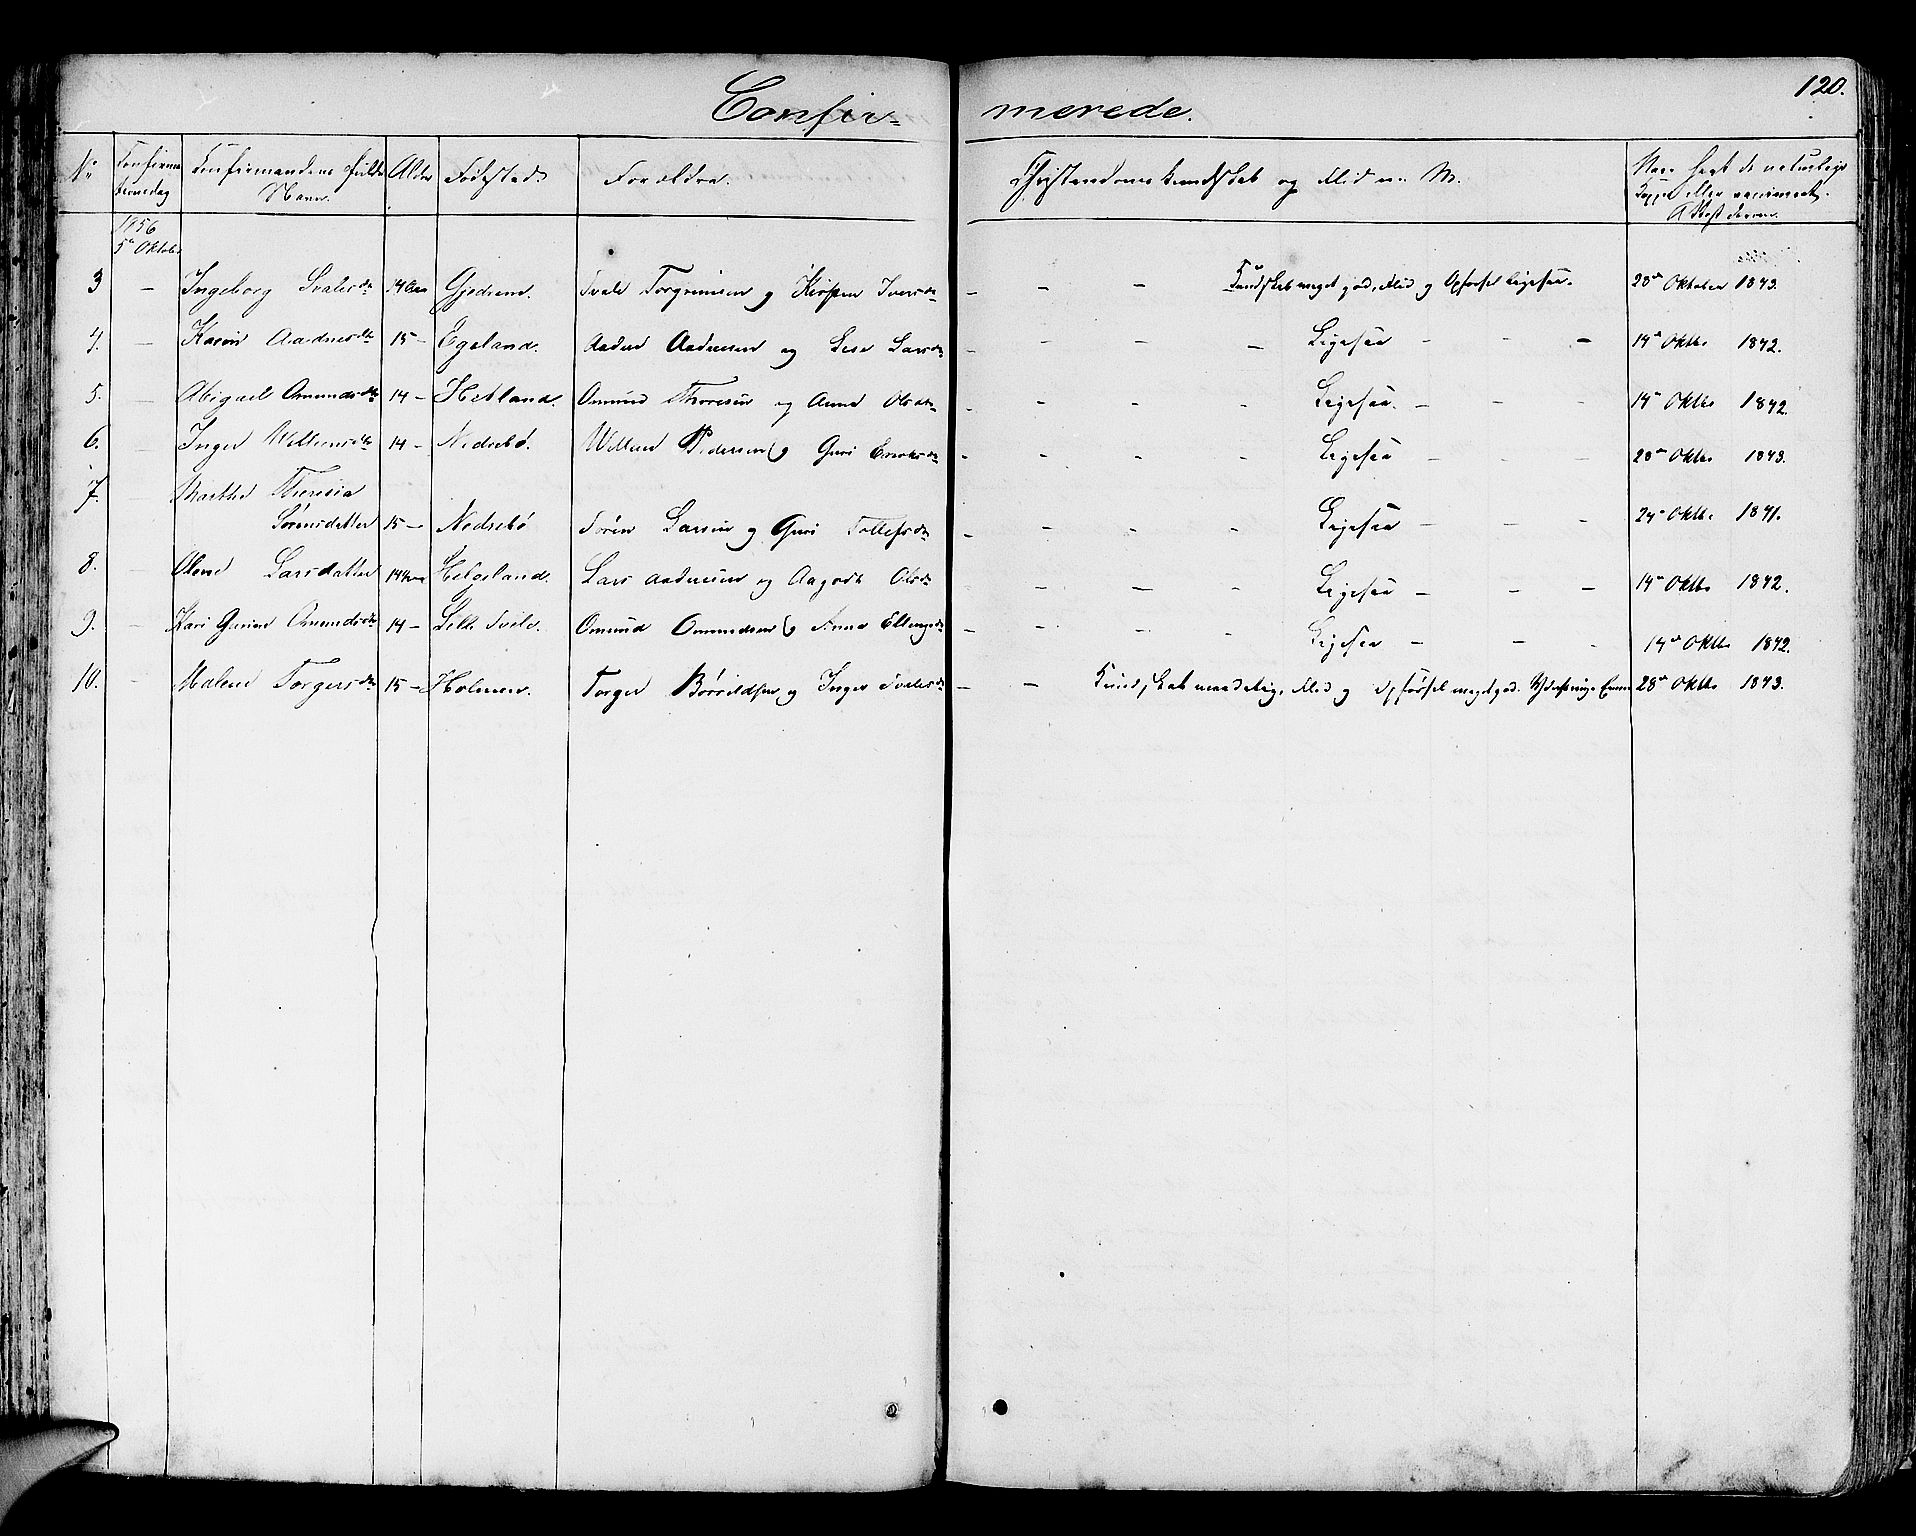 Confir= merede. 120.
No Confirma Confirmandens fulde Alder Fødested Forældre. Christendomskundskab og Flid m. M. Naar havt de naturlige
tionsdag Navn. Kopper eller vaccineret,
Attest derom.
1856
5te Oktober
3 – Ingeborg Svalesdr 14 Aar Gjedrem. Svale Torgrimsen og Kirsten Iversdr – – – Kundskab meget god, Flid og Opførsel ligesaa. 28de Oktober 1843.
4. – Karen Aadnesdr 15 – Egeland. Aaden Aadnesen og Lise Larsdr – – – – Ligesaa – – – 14de Oktbr 1842.
5. – Abigael Omundsdr 14 – Hetland. Omund Thoresen og Anna Olsdr – – – – Ligesaa. – – – 14de Oktbr 1842.
6. – Inger Willumsdr 14 – Nedrebø. Willum Pedersen og Guri Eriksdr – – – – Ligesaa – – – 28de Oktbr 1843.
7. – Marthe Theresia
Sørensdatter 15 – Nedrebø Søren Larsen og Guri Tollefsdr – – – – Ligesaa – – – 24de Oktbr. 1841.
8. – Olene Larsdatter 14 Aar Helgeland. Lars Aadnesen og Aagode Olsdr – – – Ligesaa – – – 14de Oktbr 1842.
9. – Kari Gurine Omundsdr 14 – Lille Svele. Omund Omundsen og Anna Ellingsdr – – – – Ligesaa – – – 14de Oktbr 1842.
10. – Malene Torgersdr 15 – Holmen. Torger Børrildsen og Inger Svalesdr – – Kundskab maadelig, Flid og Opførsel meget god. 28de Oktbr 1843.